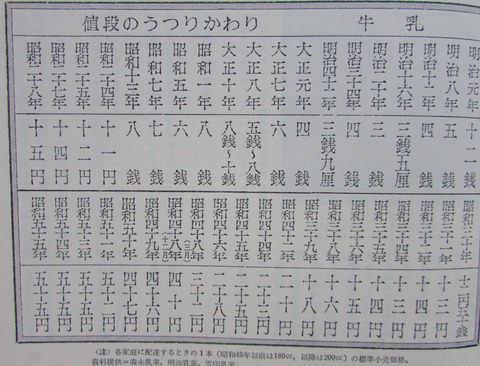 値段のうつりかわり 牛乳
明治元年 十二銭
明治八年 五銭
明治十二年 四銭
明治十六年 三銭五厘
明治二十年 三銭
明治三十四年 四銭
明治四十二年 三銭九厘
大正元年 四銭
大正七年 六銭
大正八年 五銭〜八銭
大正十年 八銭〜十銭
昭和一年 八銭
昭和五年 六銭
昭和七年 七銭
昭和十三年 八銭
昭和二十四年 十一円
昭和二十五年 十二円
昭和二十七年 十四円
昭和二十八年 十五円
昭和三十年 十二円五十銭
十三円
十四円
十三円
昭和三十五年 十四円
昭和三十六年 十五円
昭和三十八年 十六円
昭和三十九年 十八円
昭和四十二年 二十円
昭和四十四年 二十三円
昭和四十五年 二十五円
昭和四十六年
昭和四十八年(三月) 三十二円
昭和四十八年(十二月) 四十円
昭和四十九年 四十六円
昭和五十年 四十七円
昭和五十一年 五十二円
昭和五十三年 五十五円
昭和五十四年 五十五円
昭和五十五年 五十五円
〈注〉各家庭に配達するときの1本(昭和45年以前は180cc,以降は200cc)の標準小売価格。
資料提供=森永乳業,明治乳業,雪印乳業